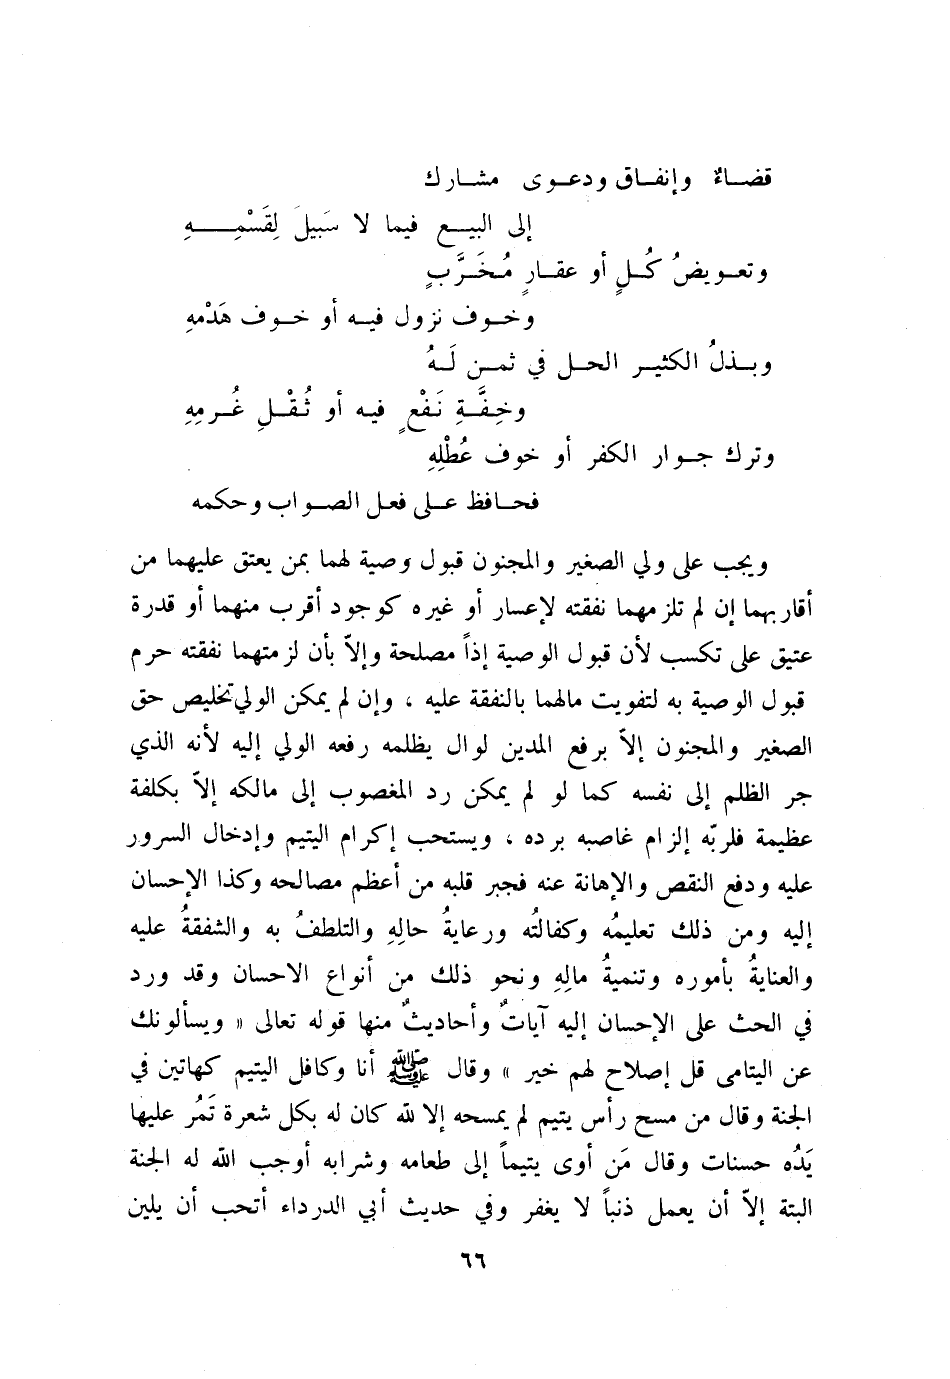 قضاءٌ وإنفاق ودعوى مشارك
إلى البيع فيما لا سَبيلَ لِقَسْمِهِ
وتعويضُ كُلٍ أو عقارٍ مُخَرَّبٍ
وخوف نزول فيه أو خوف هَدْمهِ
وبذلُ الكثير الحل في ثمن لَهُ
وخِفَّةِ نَفْعٍ فيه أو ثُقْلِ غُرمِهِ
وترك جوار الكفر أو خوف عُطْلِهِ
فحافظ على فعل الصواب وحكمه
ويجب على ولي الصغير والمجنون قبول وصية لهما بمن يعتق عليهما من
أقاربهما إن لم تلزمهما نفقته لإعسار أو غيره كوجود أقرب منهما أو قدرة
عتيق على تكسب لأن قبول الوصية إذاً مصلحة وإلاّ بأن لزمتهما نفقته حرم
قبول الوصية به لتفويت مالهما بالنفقة عليه ، وإن لم يمكن الولي تخليص حق
الصغير والمجنون إلاّ برفع المدين لوال يظلمه رفعه الولي إليه لأنه الذي
جر الظلم إلى نفسه كما لو لم يمكن رد المغصوب إلى مالكه إلاّ بكلفة
عظيمة فلربّه إلزام غاصبه برده ، ويستحب إكرام اليتيم وإدخال السرور
عليه ودفع النقص والإهانة عنه فجبر قلبه من أعظم مصالحه وكذا الإحسان
إليه ومن ذلك تعليمُه وكفالتُه ورعايةُ حالِهِ والتلطفُ به والشفقةُ عليه
والعنايةُ بأموره وتنميةُ مالِهِ ونحو ذلك من أنواع الاحسان وقد ورد
في الحث على الإحسان إليه آياتٌ وأحاديثٌ منها قوله تعالى « ويسألونك
عن اليتامى قل إصلاح لهم خير » وقال ﷺ أنا وكافل اليتيم كهاتين في
الجنة وقال من مسح رأس يتيم لم يمسحه إلا لله كان له بكل شعرة تَمُر عليها
يَدُه حسنات وقال مَن أوى يتيماً إلى طعامه وشرابه أوجب الله له الجنة
البتة إلاّ أن يعمل ذنباً لا يغفر وفي حديث أبي الدرداء أتحب أن يلين
٦٦